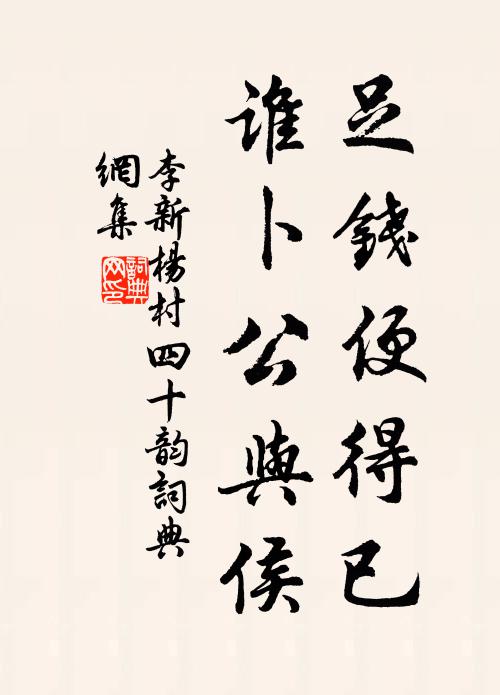 足錢便得已
誰卜公與侯
李新楊村四十韵詞典
網集
詞典網印